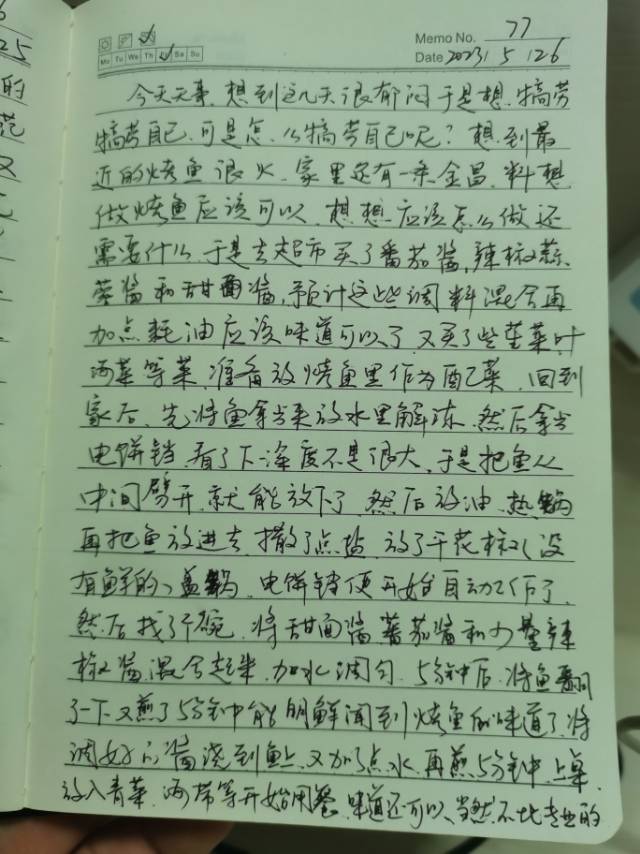 的
Mo Tu We Th Fr Sa Su
Memo No. 77
Date 2023/5/26
今天无事,想到这几天很郁闷于是想,犒劳
犒劳自己,可是怎么犒劳自己呢?想到最
近的烤鱼很火,家里还有一条金昌,料想
做烤鱼应该可以,想想应该怎么做还
需要什么,于是去超市买了番茄酱,辣椒蒜
蓉酱和甜面酱,预计这些调料混合再
加点耗油应该味道可以了,又买了些茎菜叶
两菜等菜,准备放烤鱼里作为配菜,回到
家后,先将鱼拿出来放水里解冻,然后拿出
电饼铛,看了下深度不是很大,于是把鱼从
中间劈开,就能放下了,然后放油,热锅
再把鱼放进去,撒了点盐,放了干花椒(没
有鲜的、盖锅,电饼铛便开始自动工作了,
然后找了个碗,将甜面酱蕃茄酱和少量辣
椒酱混合起来,加水调匀,5分钟后,将鱼翻
了一下又煎了5分钟中能明鲜闻到烤鱼的味道了,将
调好的酱浇到鱼上,又加了点水,再煎5分钟,上桌,
放入青菜,两带等开始用餐,味道还可以,当然不比专业的